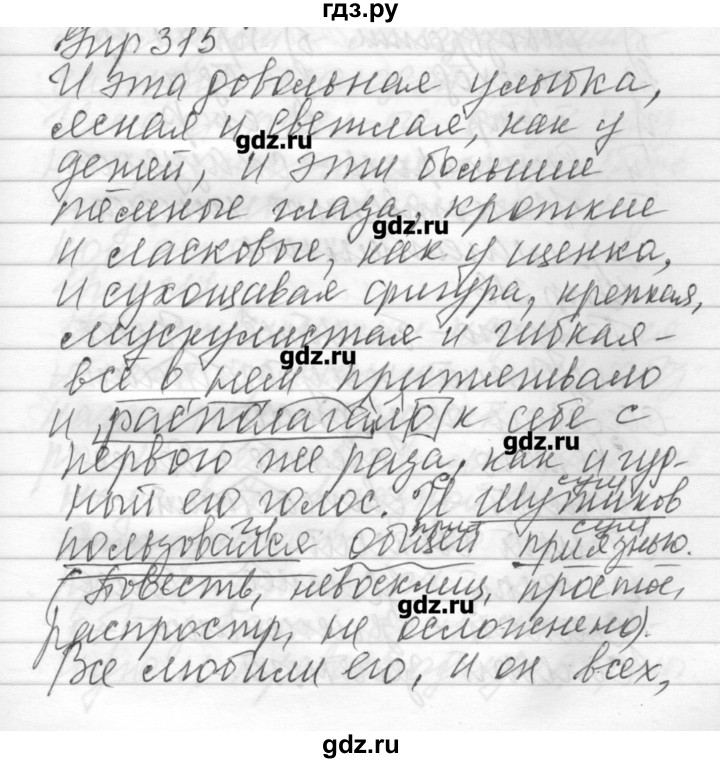 гдз.ру
Упр 315
И эта довольная улыбка,
ясная и светлая, как у
gdz.ru
детей, и эти большие
тёмные глаза, кроткие
gdz.ru
и ласковые, как у щенка,
и сухощавая фигура, крепкая,
мускулистая и гибкая -
gdz.ru
всё в нем притягивало
и располагало к себе с
gdz.ru
первого же раза, как и чуд-
ный его голос. И Шутиков
сущ
пользовался общей приязнью.
гл прил сущ
(Повеств, невосклиц, простое,
gdz.ru
распростр, не осложнено).
Все любили его, и он всех,
gdz.ru